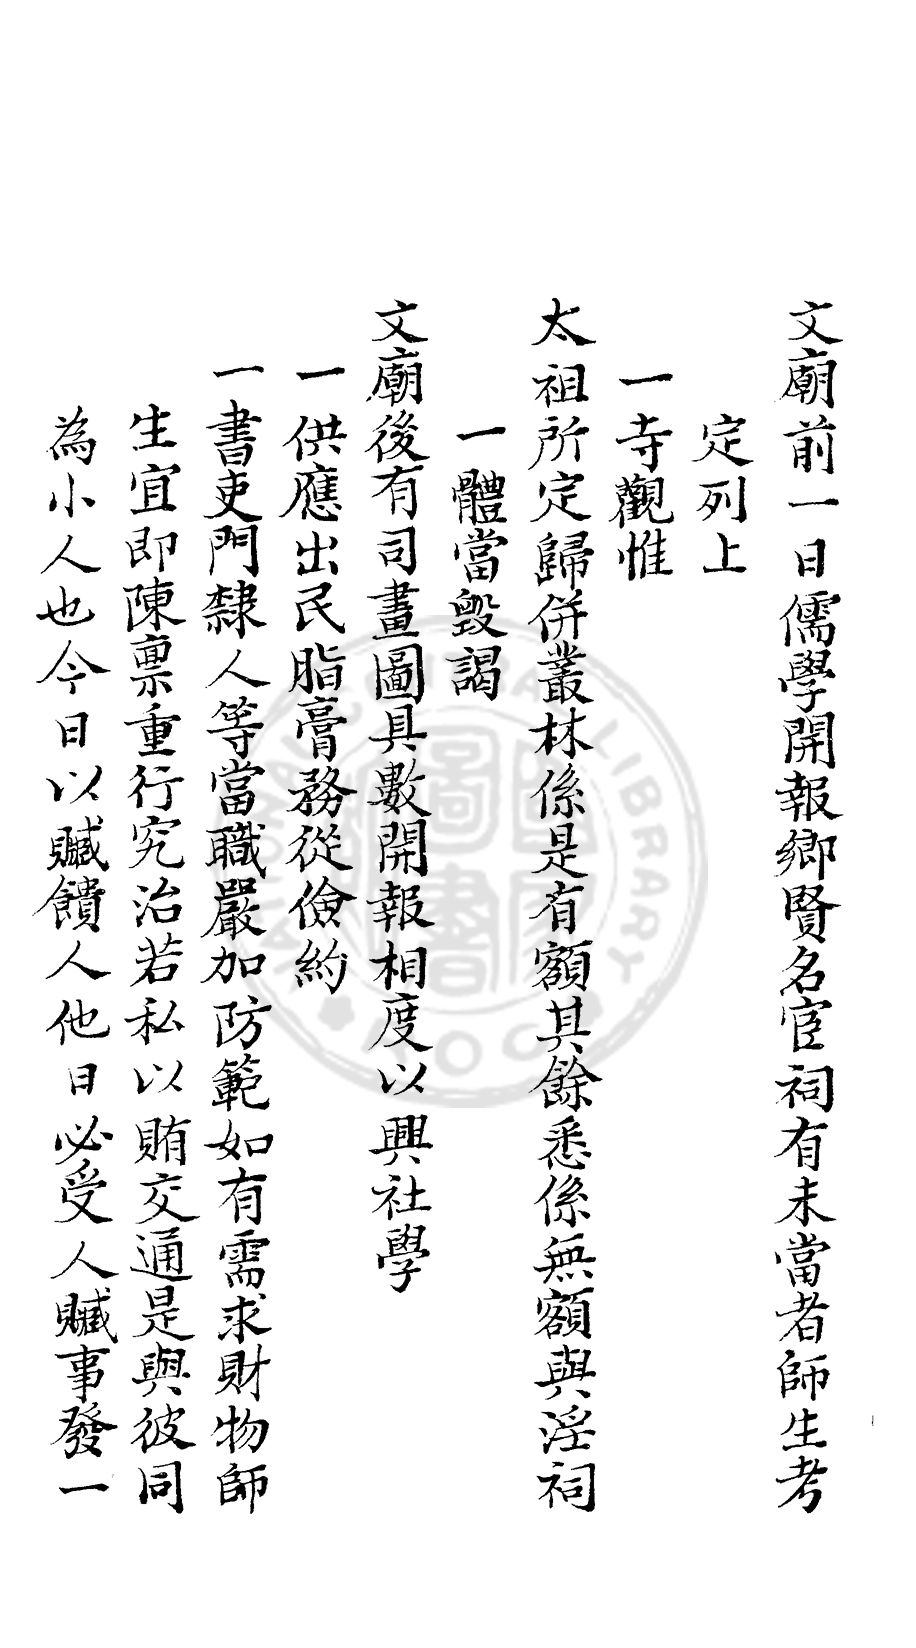 文廟前一日儒學開報鄉賢名宦祠有未當者師生考
定列上
一寺觀惟
太祖所定歸併叢林係是有額其餘悉係無額與淫祠
一體當毀謁
文廟後有司畫圖具數開報相度以興社學
一供應出民脂膏務從儉約
一書吏門隸人等當職嚴加防範如有需求財物師
生宜即陳禀重行究治若私以賄交通是與彼同
為小人也今日以贓饋人他日必受人贓事發一